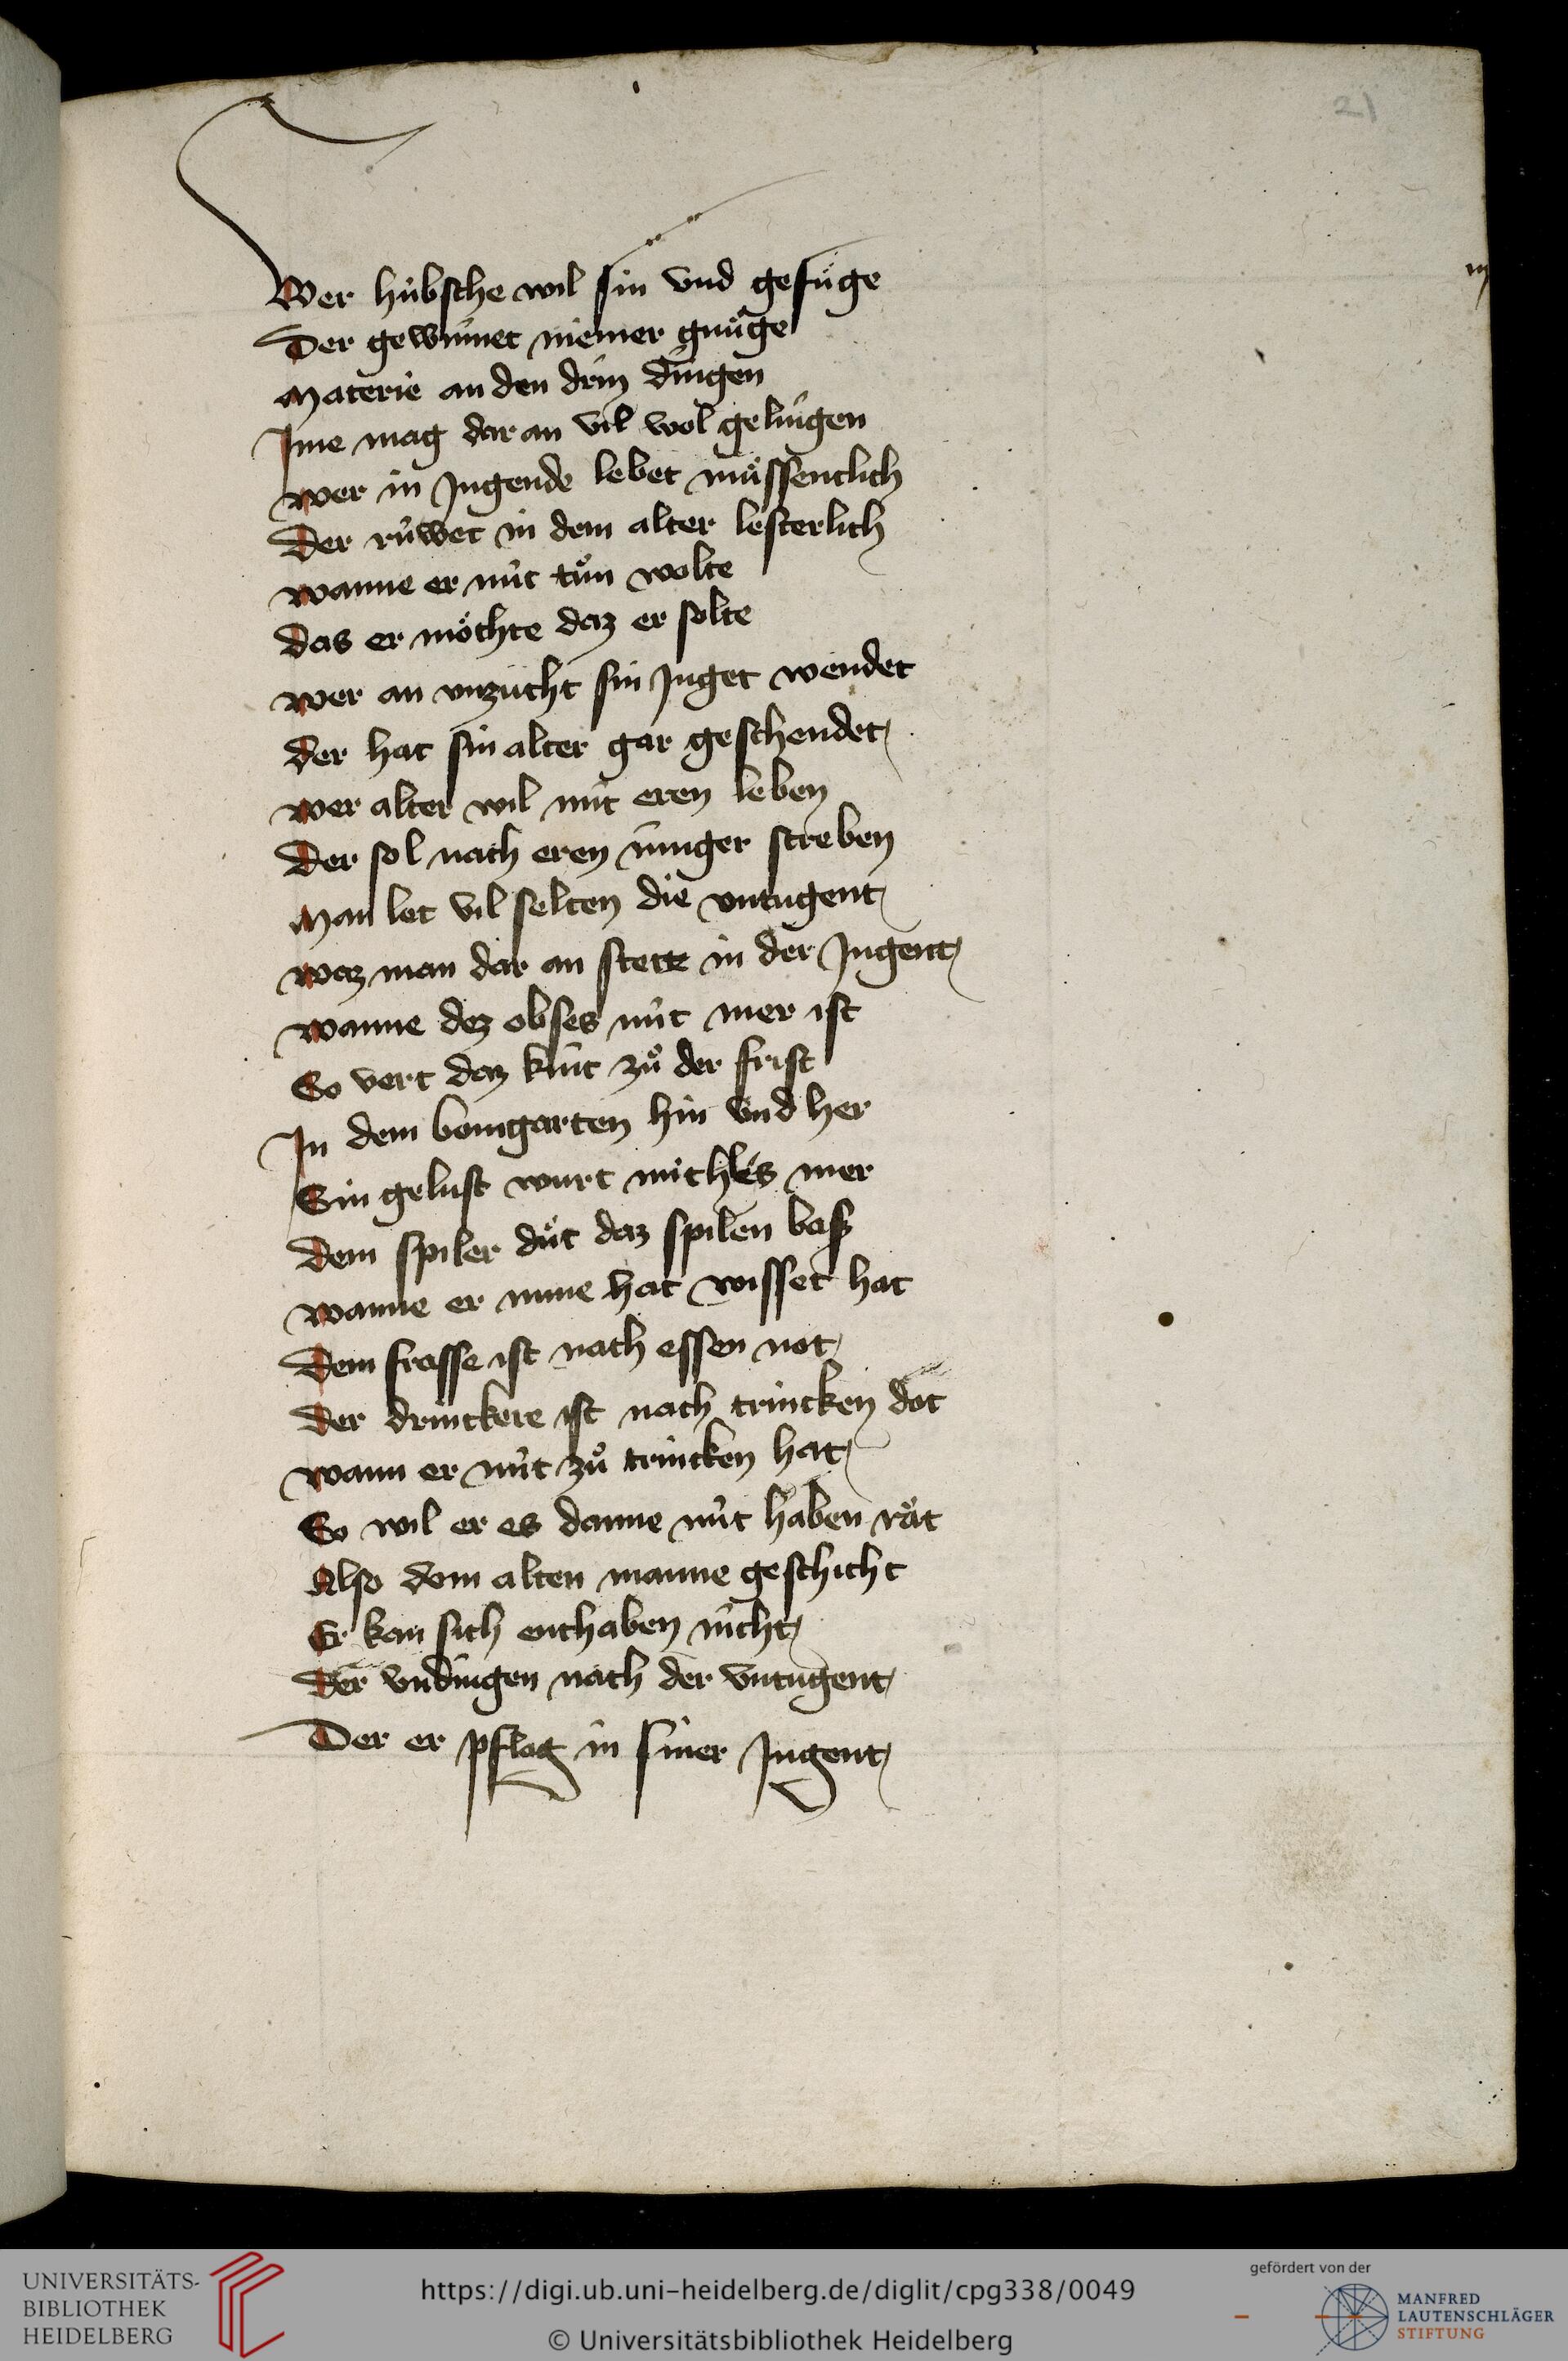 21
iij
Wer hübsche wil sin vnd gefuͤge
Der gewinnet niemer gnuͤge
Materie an den drin dingen
Jme mag dar an vil wol gelingen
wer in Jugende lebet muͤssentlich
Der ruͦwet in dem alter lesterlich
wanne er nüt tuͦn wolte
das er moͤchte daz er solte
wer an vnzucht sin Juget wendet
der hat sin alter gar geschendet
wer alter wil mit eren leben
Der sol nach eren iunger streben
Man let vil selten die vntugent
waz man dar an stett in der Jugent
wanne dez obses nüt mer ist
So vert daz kint zuͦ der frist
In dem bomgarten hin vnd her
Sin gelust wurt michles mer
dem spiler duͦt daz spilen bas
wanne er nime hat wisset hat
Dem frasse ist nach essen not
der drinckere ist nach trincken dot
wann er nüt zuͦ trincken hat
So wil er es danne nüt haben rät
Also dem alten manne geschicht
Er kan sich enthaben nicht
Der vndingen nach der vntugent
Der er pflag in siner Jugent
UNIVERSITÄTS-
BIBLIOTHEK
HEIDELBERG
https://digi.ub.uni-heidelberg.de/diglit/cpg338/0049
© Universitätsbibliothek Heidelberg
gefördert von der
MANFRED
LAUTENSCHLÄGER
STIFTUNG